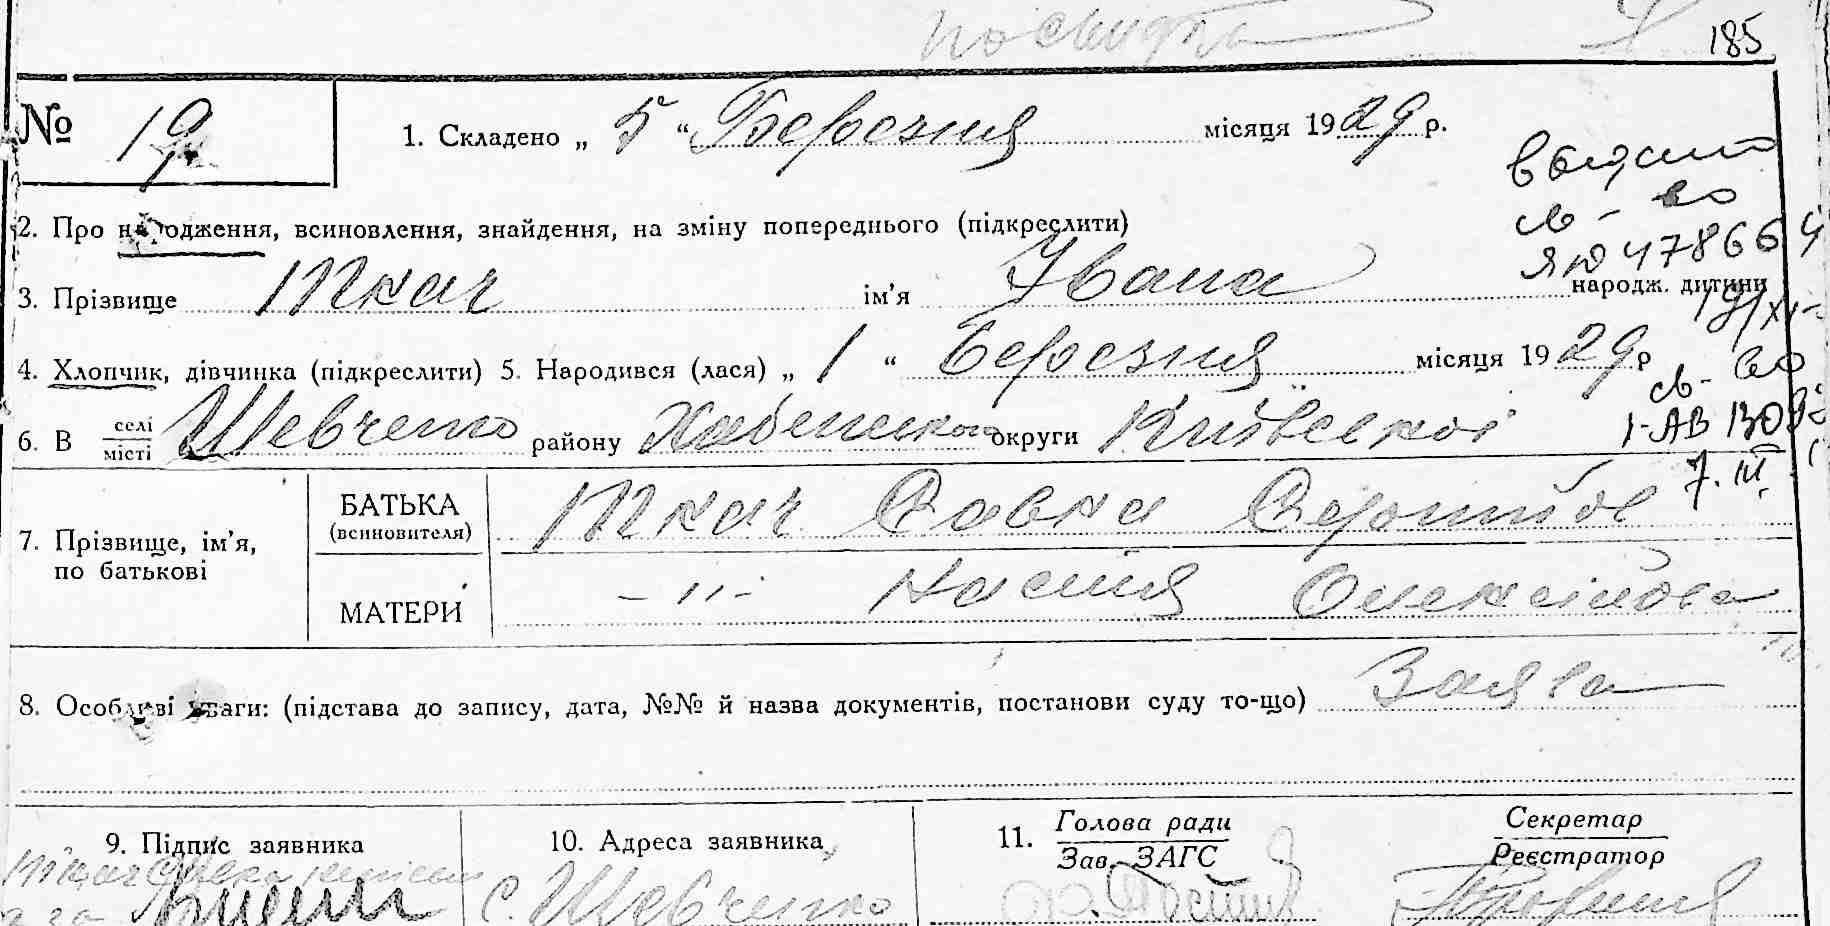 посвидка 185
№ 19 1. Складено „ 5 “ Березня місяця 1929 р.
2. Про народження, всиновлення, знайдення, на зміну попереднього (підкреслити)
3. Прізвище Ткач ім’я Івана народж. дитини
4. Хлопчик, дівчинка (підкреслити) 5. Народився (лася) „ 1 “ Березня місяця 1929 р
6. В селі місті Шевченко району Хабенського округи Київської
св-во
ЯЮ 478664
св-во
7. III
7. Прізвище, ім’я, по батькові
БАТЬКА (всиновителя) Ткач Савка
МАТЕРИ -〃- Настя Олексійова
8. Особливі уваги: (підстава до запису, дата, №№ й назва документів, постанови суду то-що) Заява
9. Підпис заявника 10. Адреса заявника 11. Голова ради Зав. ЗАГС Секретар Реєстратор
Ткач Савка с. Шевченко